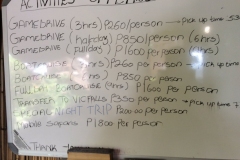 ACTIVITIES OFFERED
GAMEDRIVE (3hrs) P260/person → pick up time
GAMEDRIVE (halfday) P850/person (6hrs)
GAMEDRIVE (fullday) P1600/person
BOATCRUISE (3hrs) P260 per person → pick up time
BOATCRUISE P850 per person
FULLDAY BOATCRUISE P1600 per person
TRANSFER TO VICFALLS P350 per person → pick up time 7
NIGHT TRIP P2000.00 per person
Mobile safaris P1800 per person
THANK